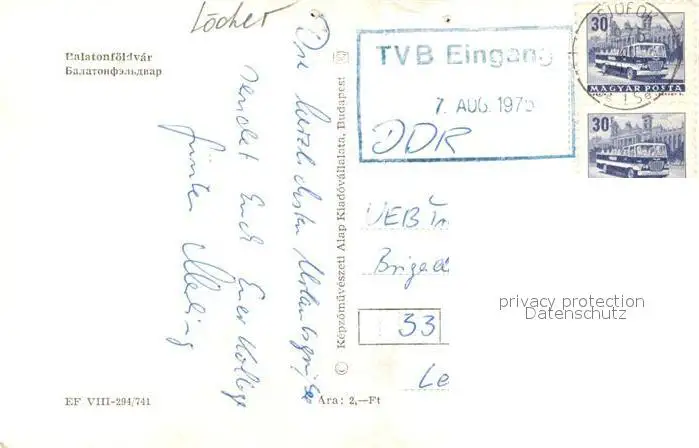 Löcher
Balatonföldvár
Балатонфэльдвар
Die herzlichsten Urlaubsgrüße
sendet Euch Euer Kollege
Günter
EF VIII-294/741
© Képzőművészeti Alap Kiadóvállalata, Budapest
Ára: 2,—Ft
TVB Eingang
7. AUG. 1975
DDR
30
MAGYAR POSTA
30
VEB
Brigad
33
Le
privacy protection
Datenschutz